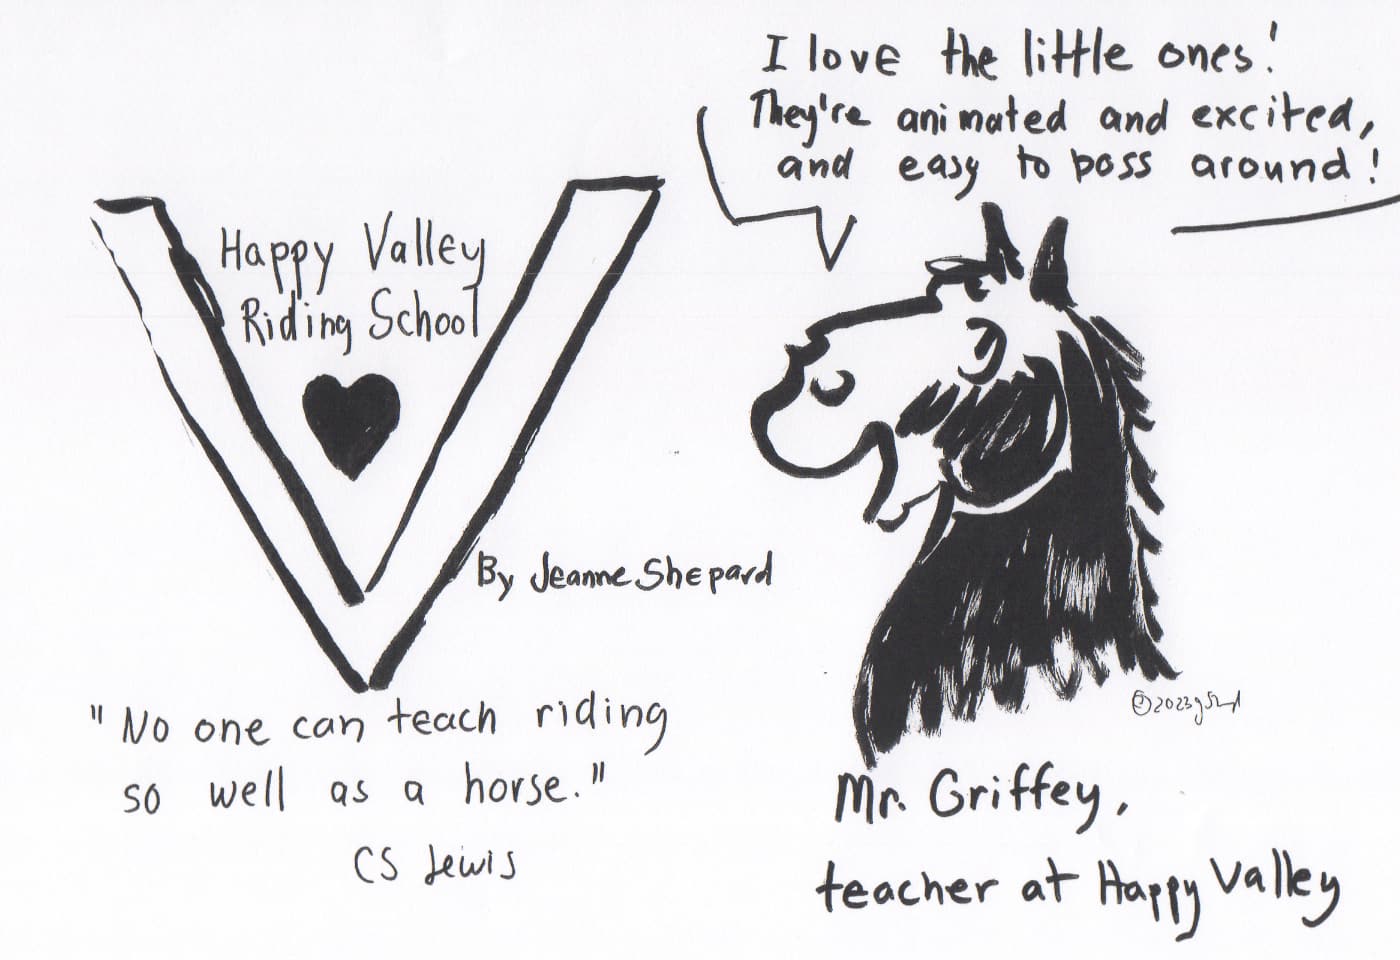 Happy Valley
Riding School
By Jeanne Shepard
"No one can teach riding
so well as a horse."
CS Lewis
I love the little ones!
They're animated and excited,
and easy to boss around!
©2023
Mr. Griffey,
teacher at Happy Valley